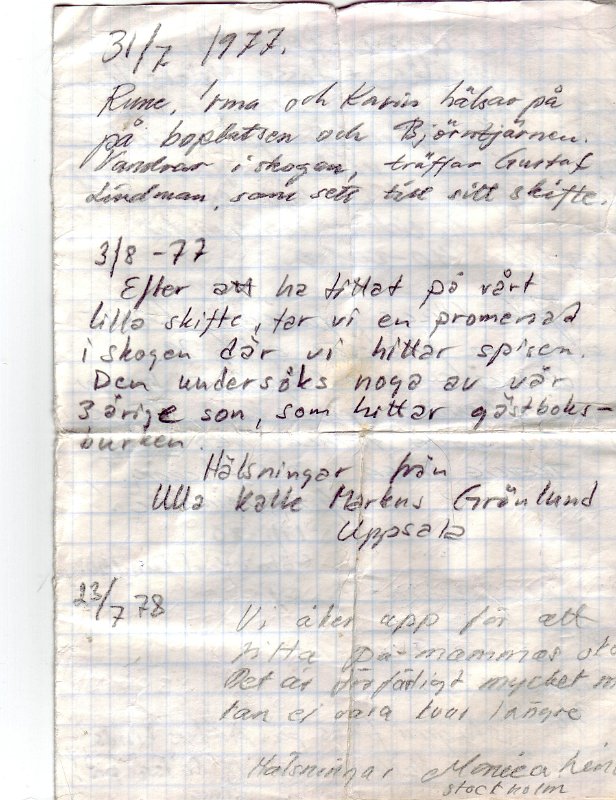 31/7 1977.
Rune, Irma och Karin hälsar på
på boplatsen och Björntjärnen.
Vandrar i skogen, träffar Gustaf
Lindman, som sett till sitt skifte.
3/8 -77
Efter att ha tittat på vårt
lilla skifte, tar vi en promenad
i skogen där vi hittar spisen.
Den undersöks noga av vår
3 årige son, som hittar gästboks-
burken.
Hälsningar från
Ulla Kalle Mårtens Grönlund
Uppsala
23/7 78
Vi åker upp för att
titta på mammas
Det är förfärligt mycket
kan ej vara kvar längre
Hälsningar Monica
Stockholm